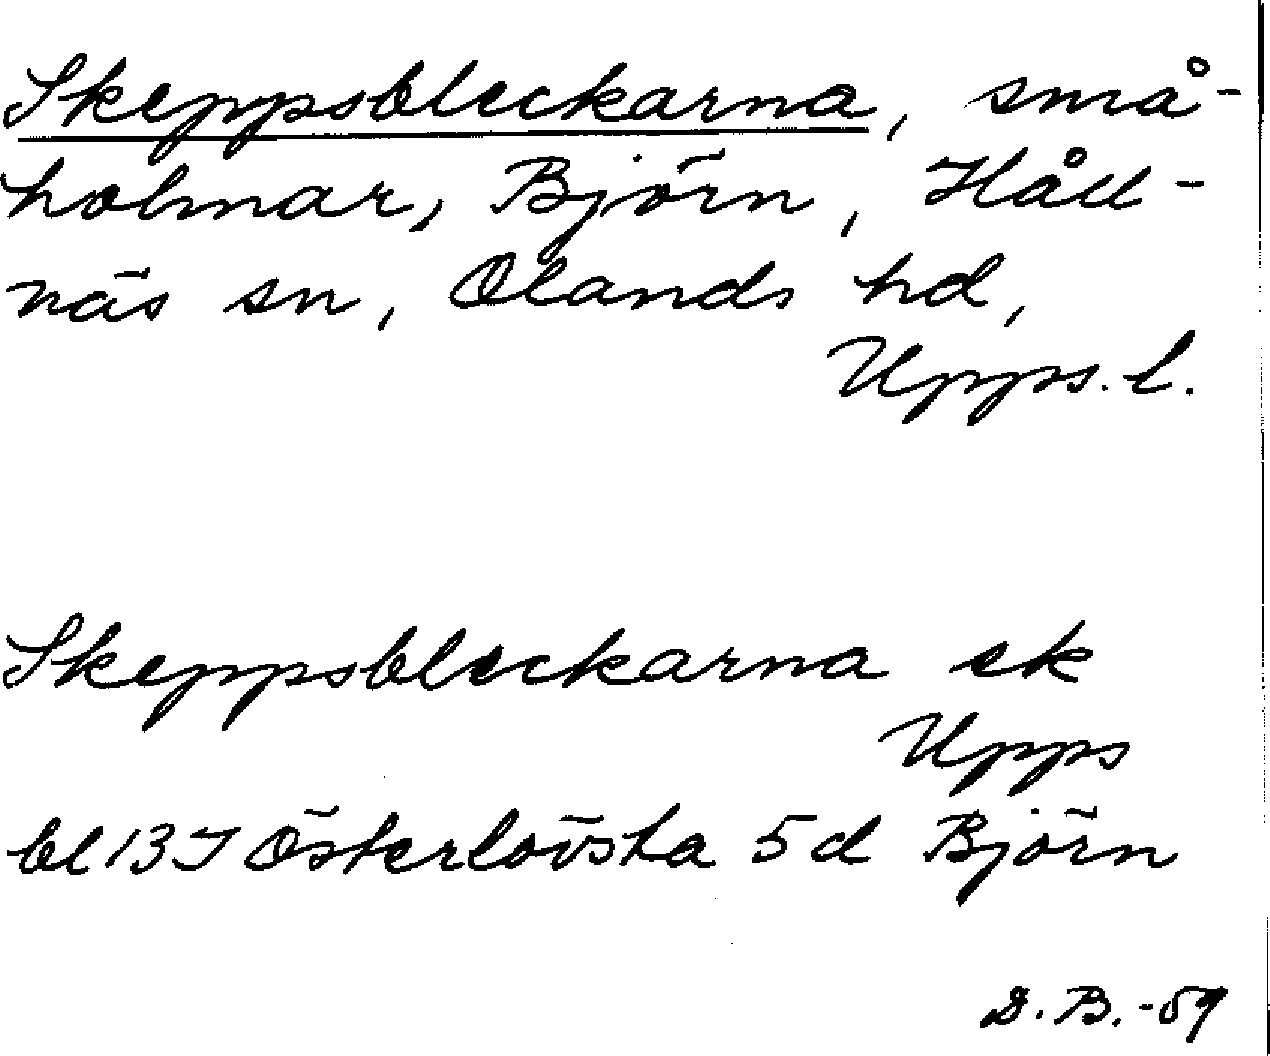 Skeppsbleckarna, små-
holmar, Björn, Håll-
näs sn, Olands hd,
Upps. l.
Skeppsbleckarna ek
Upps
bl 13 I Österlövsta 5 d Björn
D. B. -59